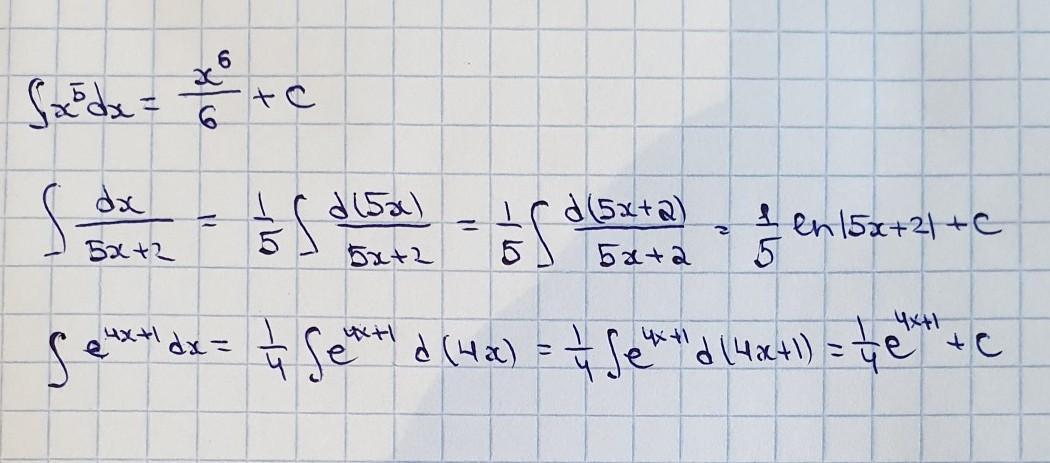 ∫x⁵dx = x⁶/6 + C
∫ dx/(5x+2) = 1/5 ∫ d(5x)/(5x+2) = 1/5 ∫ d(5x+2)/(5x+2) = 1/5 ln|5x+2| + C
∫ e^(4x+1) dx = 1/4 ∫ e^(4x+1) d(4x) = 1/4 ∫ e^(4x+1) d(4x+1) = 1/4 e^(4x+1) + C